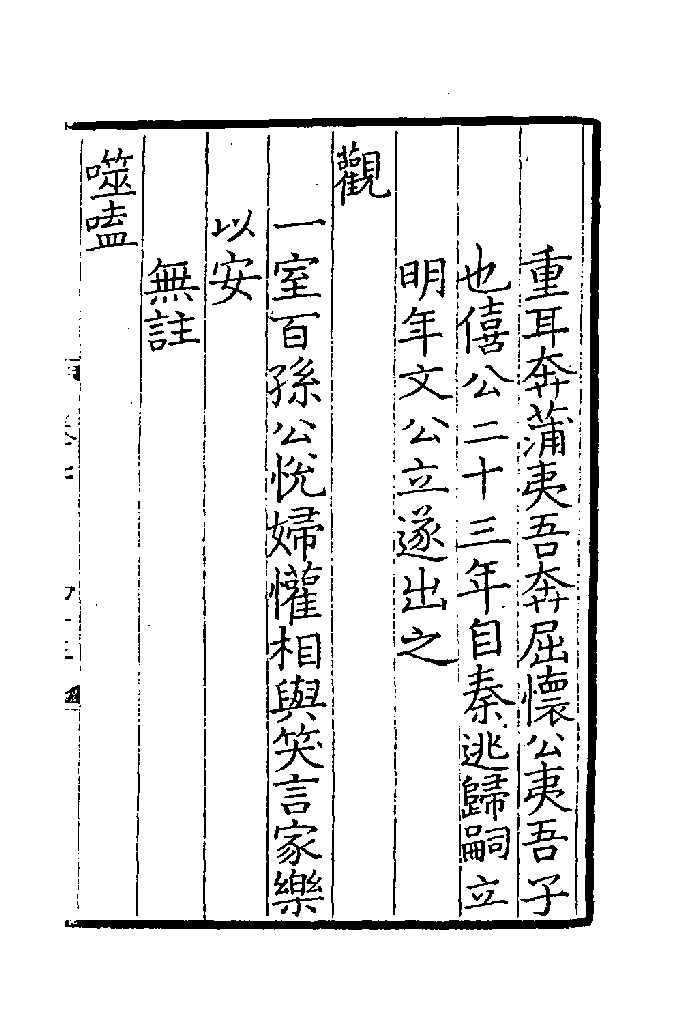 重耳奔蒲夷吾奔屈懷公夷吾子
也僖公二十三年自秦逃歸嗣立
明年文公立遂出之
觀
一室百孫公悅婦懽相與笑言家樂
以安
無註
噬嗑